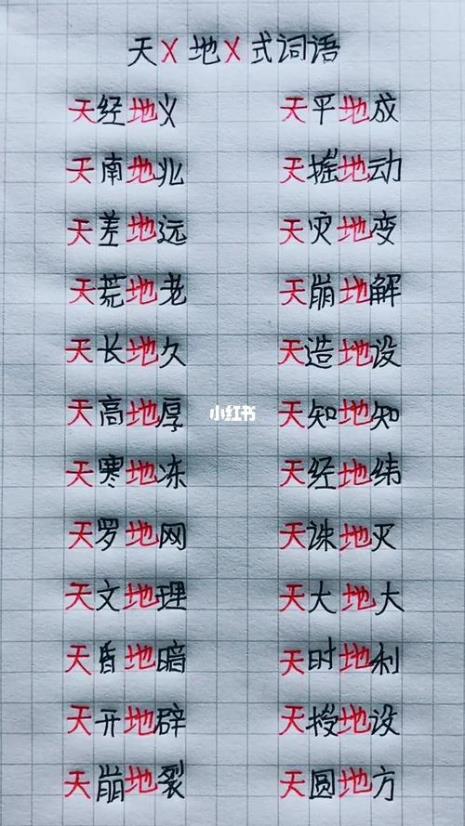 天X地X式词语
天经地义 天平地成
天南地北 天摇地动
天差地远 天灾地变
天荒地老 天崩地解
天长地久 天造地设
天高地厚 小红书 天知地知
天寒地冻 天经地纬
天罗地网 天诛地灭
天文地理 天大地大
天昏地暗 天时地利
天开地辟 天授地设
天崩地裂 天圆地方